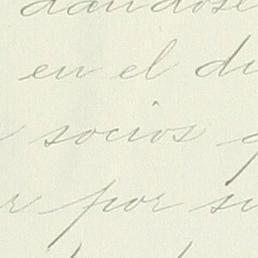 dándose
en el
socios
por